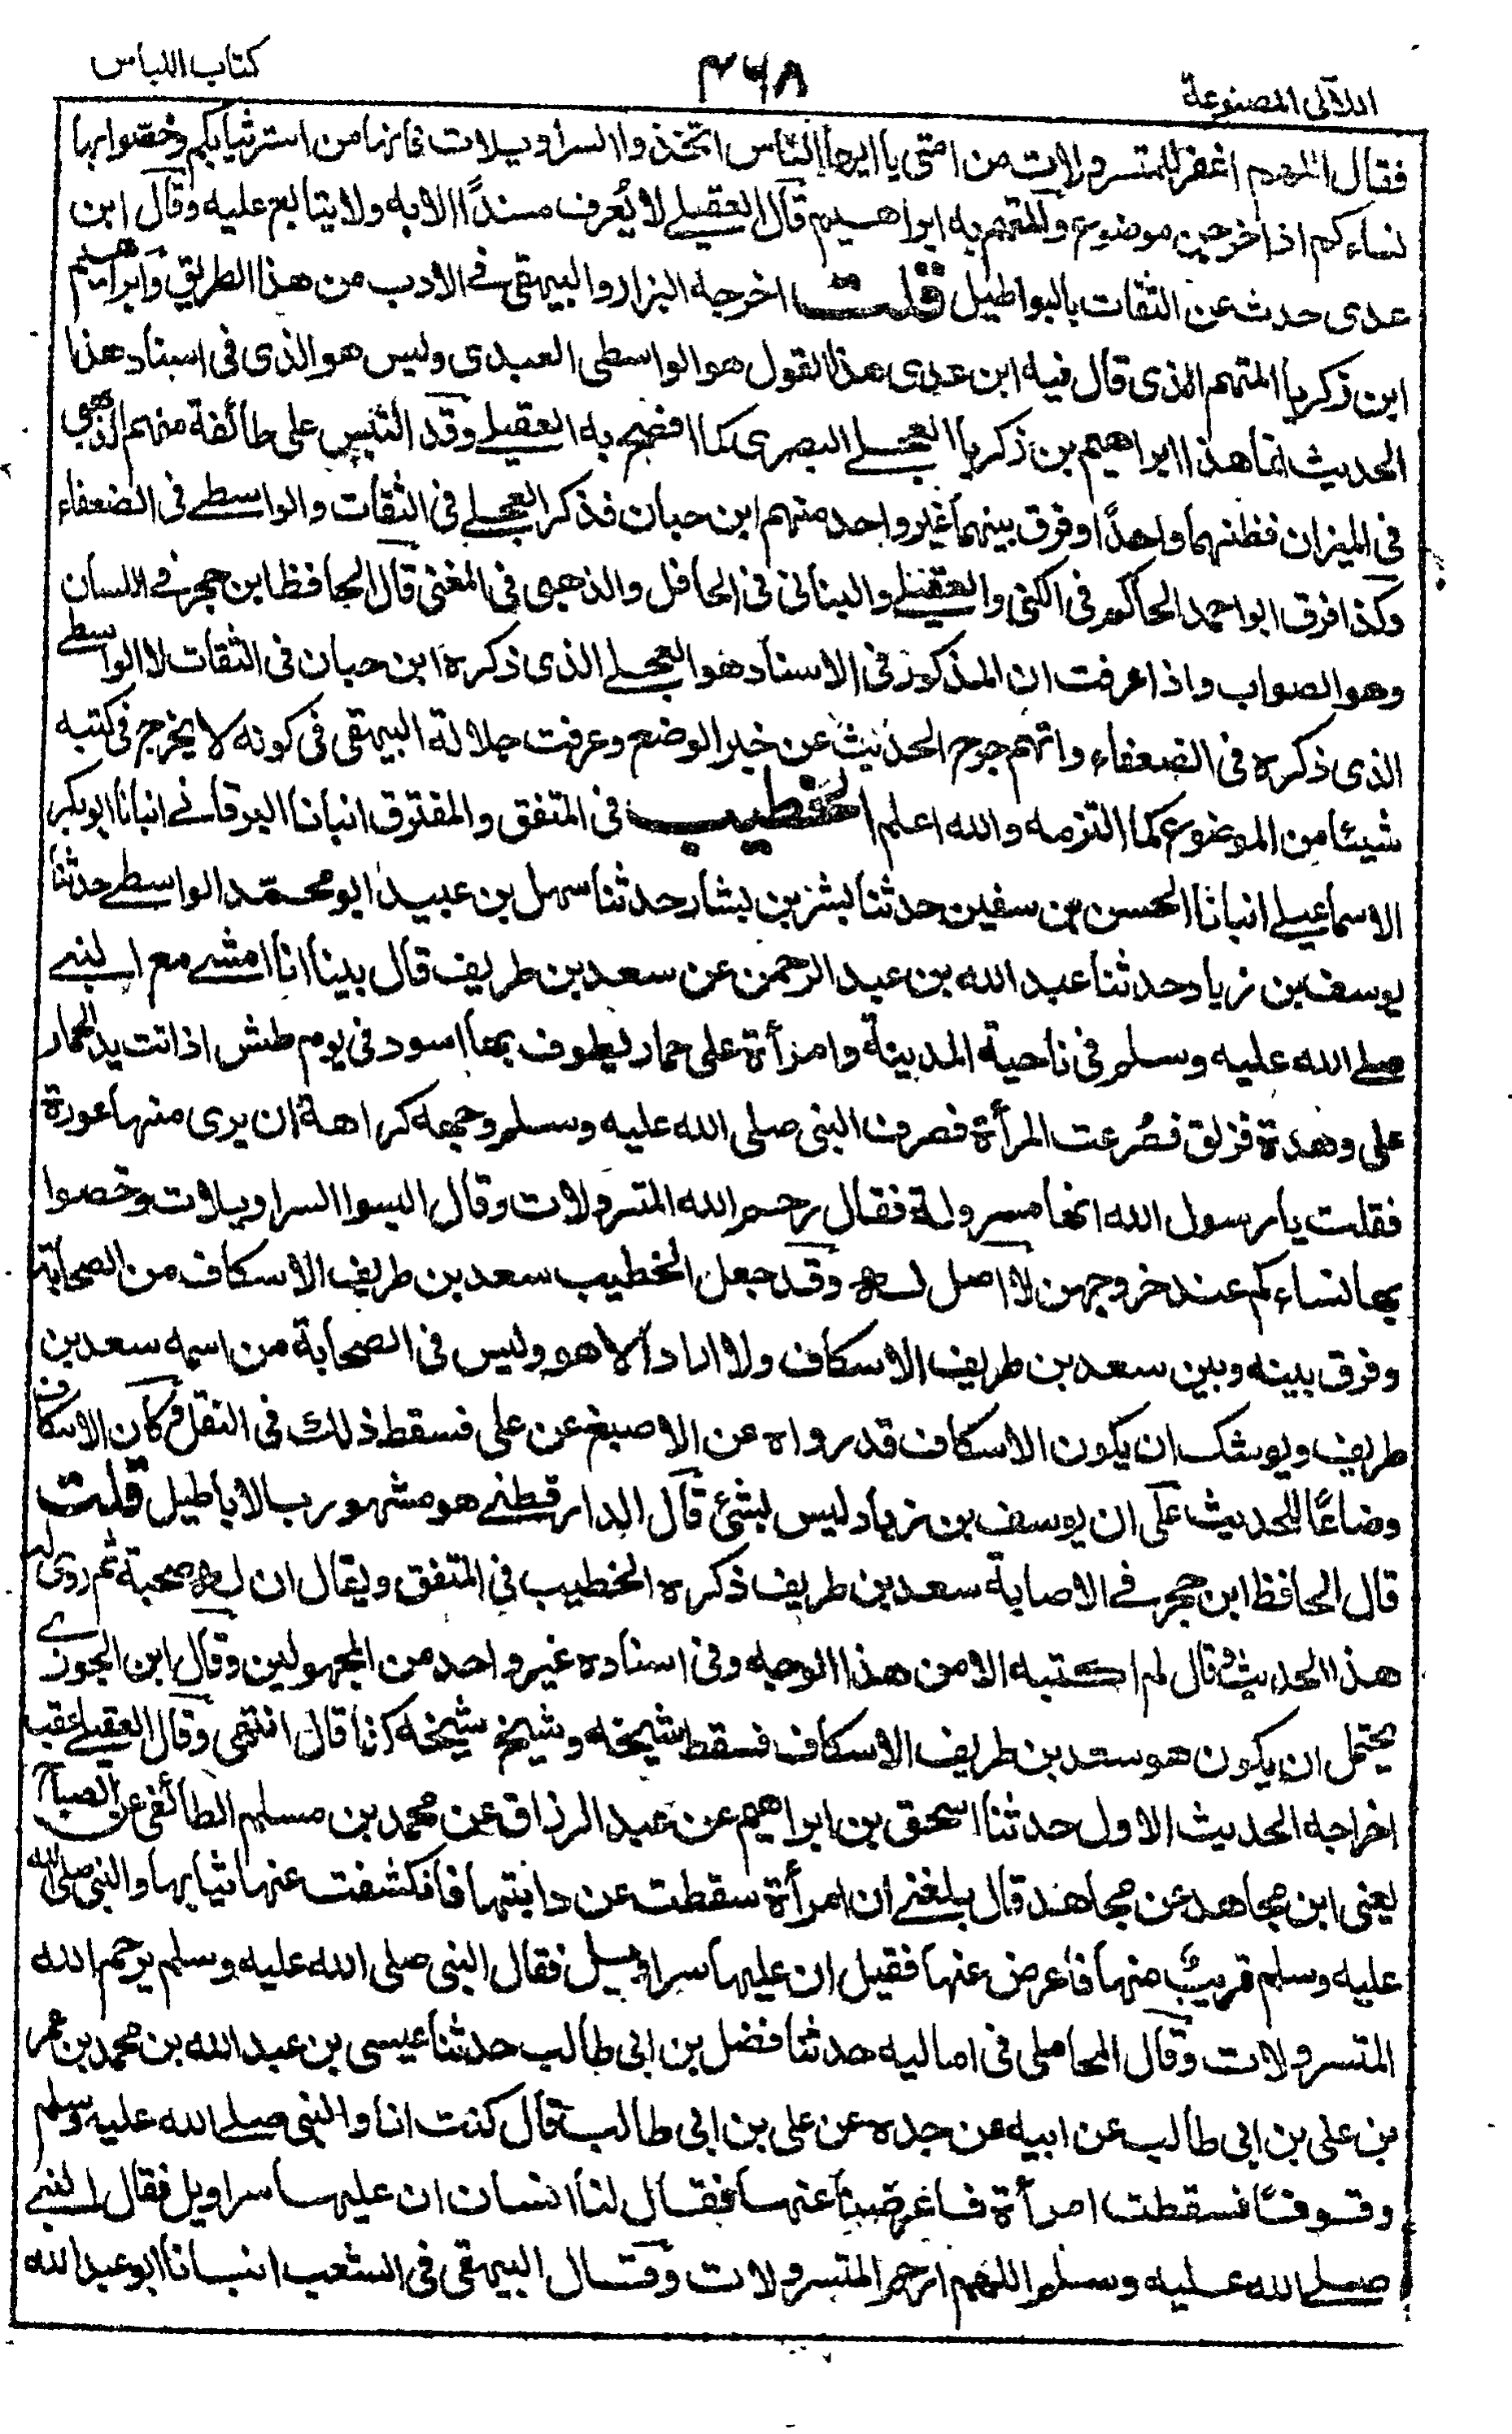 اللآلى المصنوعة
٤٦٨
كتاب اللباس
فقال اللهم اغفر للمتسرولات من امتى يا ايها الناس اتخذوا السراويلات فانها من استر ثيابكم وخصوا بها
نساءكم اذا خرجن موضوع والمتهم به ابراهيم قال العقيلے لا يُعرف مسندًا الا به ولا يتابع عليه وقال ابن
عدى حدث عن الثقات بالبواطيل قلت اخرجه البزار والبيهقى فے الادب من هذا الطريق وابراهيم
ابن زكريا المتهم الذى قال فيه ابن عدى هذا القول هو الواسطى العبدى وليس هو الذى فى اسناد هذا
الحديث انما هذا ابراهيم بن زكريا العجلے البصرى كما افصح به العقيلے وقد التبس على طائفة منهم الذهبى
فى الميزان فظنهما واحدًا وفرق بينهما غير واحد منهم ابن حبان فذكر العجلے فى الثقات والواسطے فى الضعفاء
وكذا فرق ابو احمد الحاكم فى الكنى والعقيلے والبنانى فى الحافل والذهبى فى المغنى قال الحافظ ابن حجر فے اللسان
وهو الصواب واذا عرفت ان المذكور فى الاسناد هو العجلے الذى ذكره ابن حبان فى الثقات لا الواسطے
الذى ذكره فى الضعفاء واتهم جرح الحديث عن خير الوضع وعرفت جلالة البيهقى فى كونه لا يخرج فى كتبه
شيئا من الموضوع كما التزمه والله اعلم الخطيب فى المتفق والمفترق انبانا البرقانے انبانا ابو بكر
الاسماعيلے انبانا الحسن بن سفين حدثنا بشر بن بشار حدثنا سهل بن عبيد ابو محمد الواسطے حدثنا
يوسف بن زياد حدثنا عبد الله بن عبد الرحمن عن سعد بن طريف قال بينا انا امشے مع النبے
صلے الله عليه وسلم فى ناحية المدينة وامرأة على حمار يطوف بها اسود فى يوم طش اذ اتت يد الحمار
على وهدة فزلق فصُرعت المرأة فصرف النبى صلى الله عليه وسلم وجهه كراهة ان يرى منها عورة
فقلت يا رسول الله انها مسرولة فقال رحم الله المتسرولات وقال البسوا السراويلات وخصوا
بها نساءكم عند خروجهن لا اصل له وقد جعل الخطيب سعد بن طريف الاسكاف من الصحابة
وفرق بينه وبين سعد بن طريف الاسكاف ولا اراه الا هو وليس فى الصحابة من اسمه سعد بن
طريف ويوشك ان يكون الاسكاف قد رواه عن الاصبغ عن على فسقط ذلك فى النقل وكان الاسكاف
وضاعًا للحديث على ان يوسف بن زياد ليس بشئ قال الدارقطنے هو مشهور بالاباطيل قلت
قال الحافظ ابن حجر فے الاصابة سعد بن طريف ذكره الخطيب فى المتفق ويقال ان له صحبة ثم روى له
هذا الحديث وقال لم اكتبه الا من هذا الوجه وفى اسناده غير واحد من المجهولين وقال ابن الجوزے
يحتمل ان يكون هو سعد بن طريف الاسكاف فسقط شيخه وشيخ شيخه كذا قال انتهى وقال العقيلے عقب
اخراجه الحديث الاول حدثنا اسحق بن ابراهيم عن عبد الرزاق عن محمد بن مسلم الطائفى عن الصباح
يعنى ابن مجاهد عن مجاهد قال بلغنے ان امرأة سقطت عن دابتها فانكشفت عنها ثيابها والنبى صلى الله
عليه وسلم قريب منها فاعرض عنها فقيل ان عليها سراويل فقال النبى صلى الله عليه وسلم يرحم الله
المتسرولات وقال المحاملى فى اماليه حدثنا فضل بن ابى طالب حدثنا عيسى بن عبد الله بن محمد بن عمر
بن على بن ابى طالب عن ابيه عن جده عن على بن ابى طالب قال كنت انا والنبى صلے الله عليه وسلم
وقوفًا فسقطت امرأة فاعرضنا عنها فقال لنا انسان ان عليها سراويل فقال النبے
صلے الله عليه وسلم اللهم ارحم المتسرولات وقال البيهقى فى الشعب انبانا ابو عبد الله